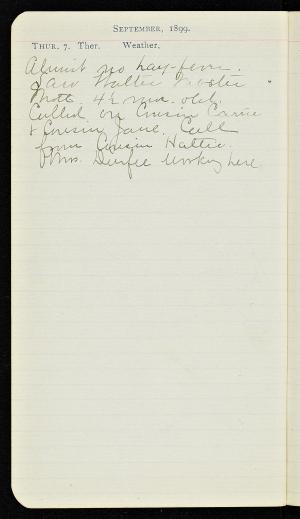 September, 1899.
Thur. 7. Ther. Weather.
Almost no hay-fever.
Saw Walter
Mott. 4½ mo. old.
Called on Cousin Carrie
& Cousin Jane. Call
from Cousin Hattie.
Mrs. Durfee working here